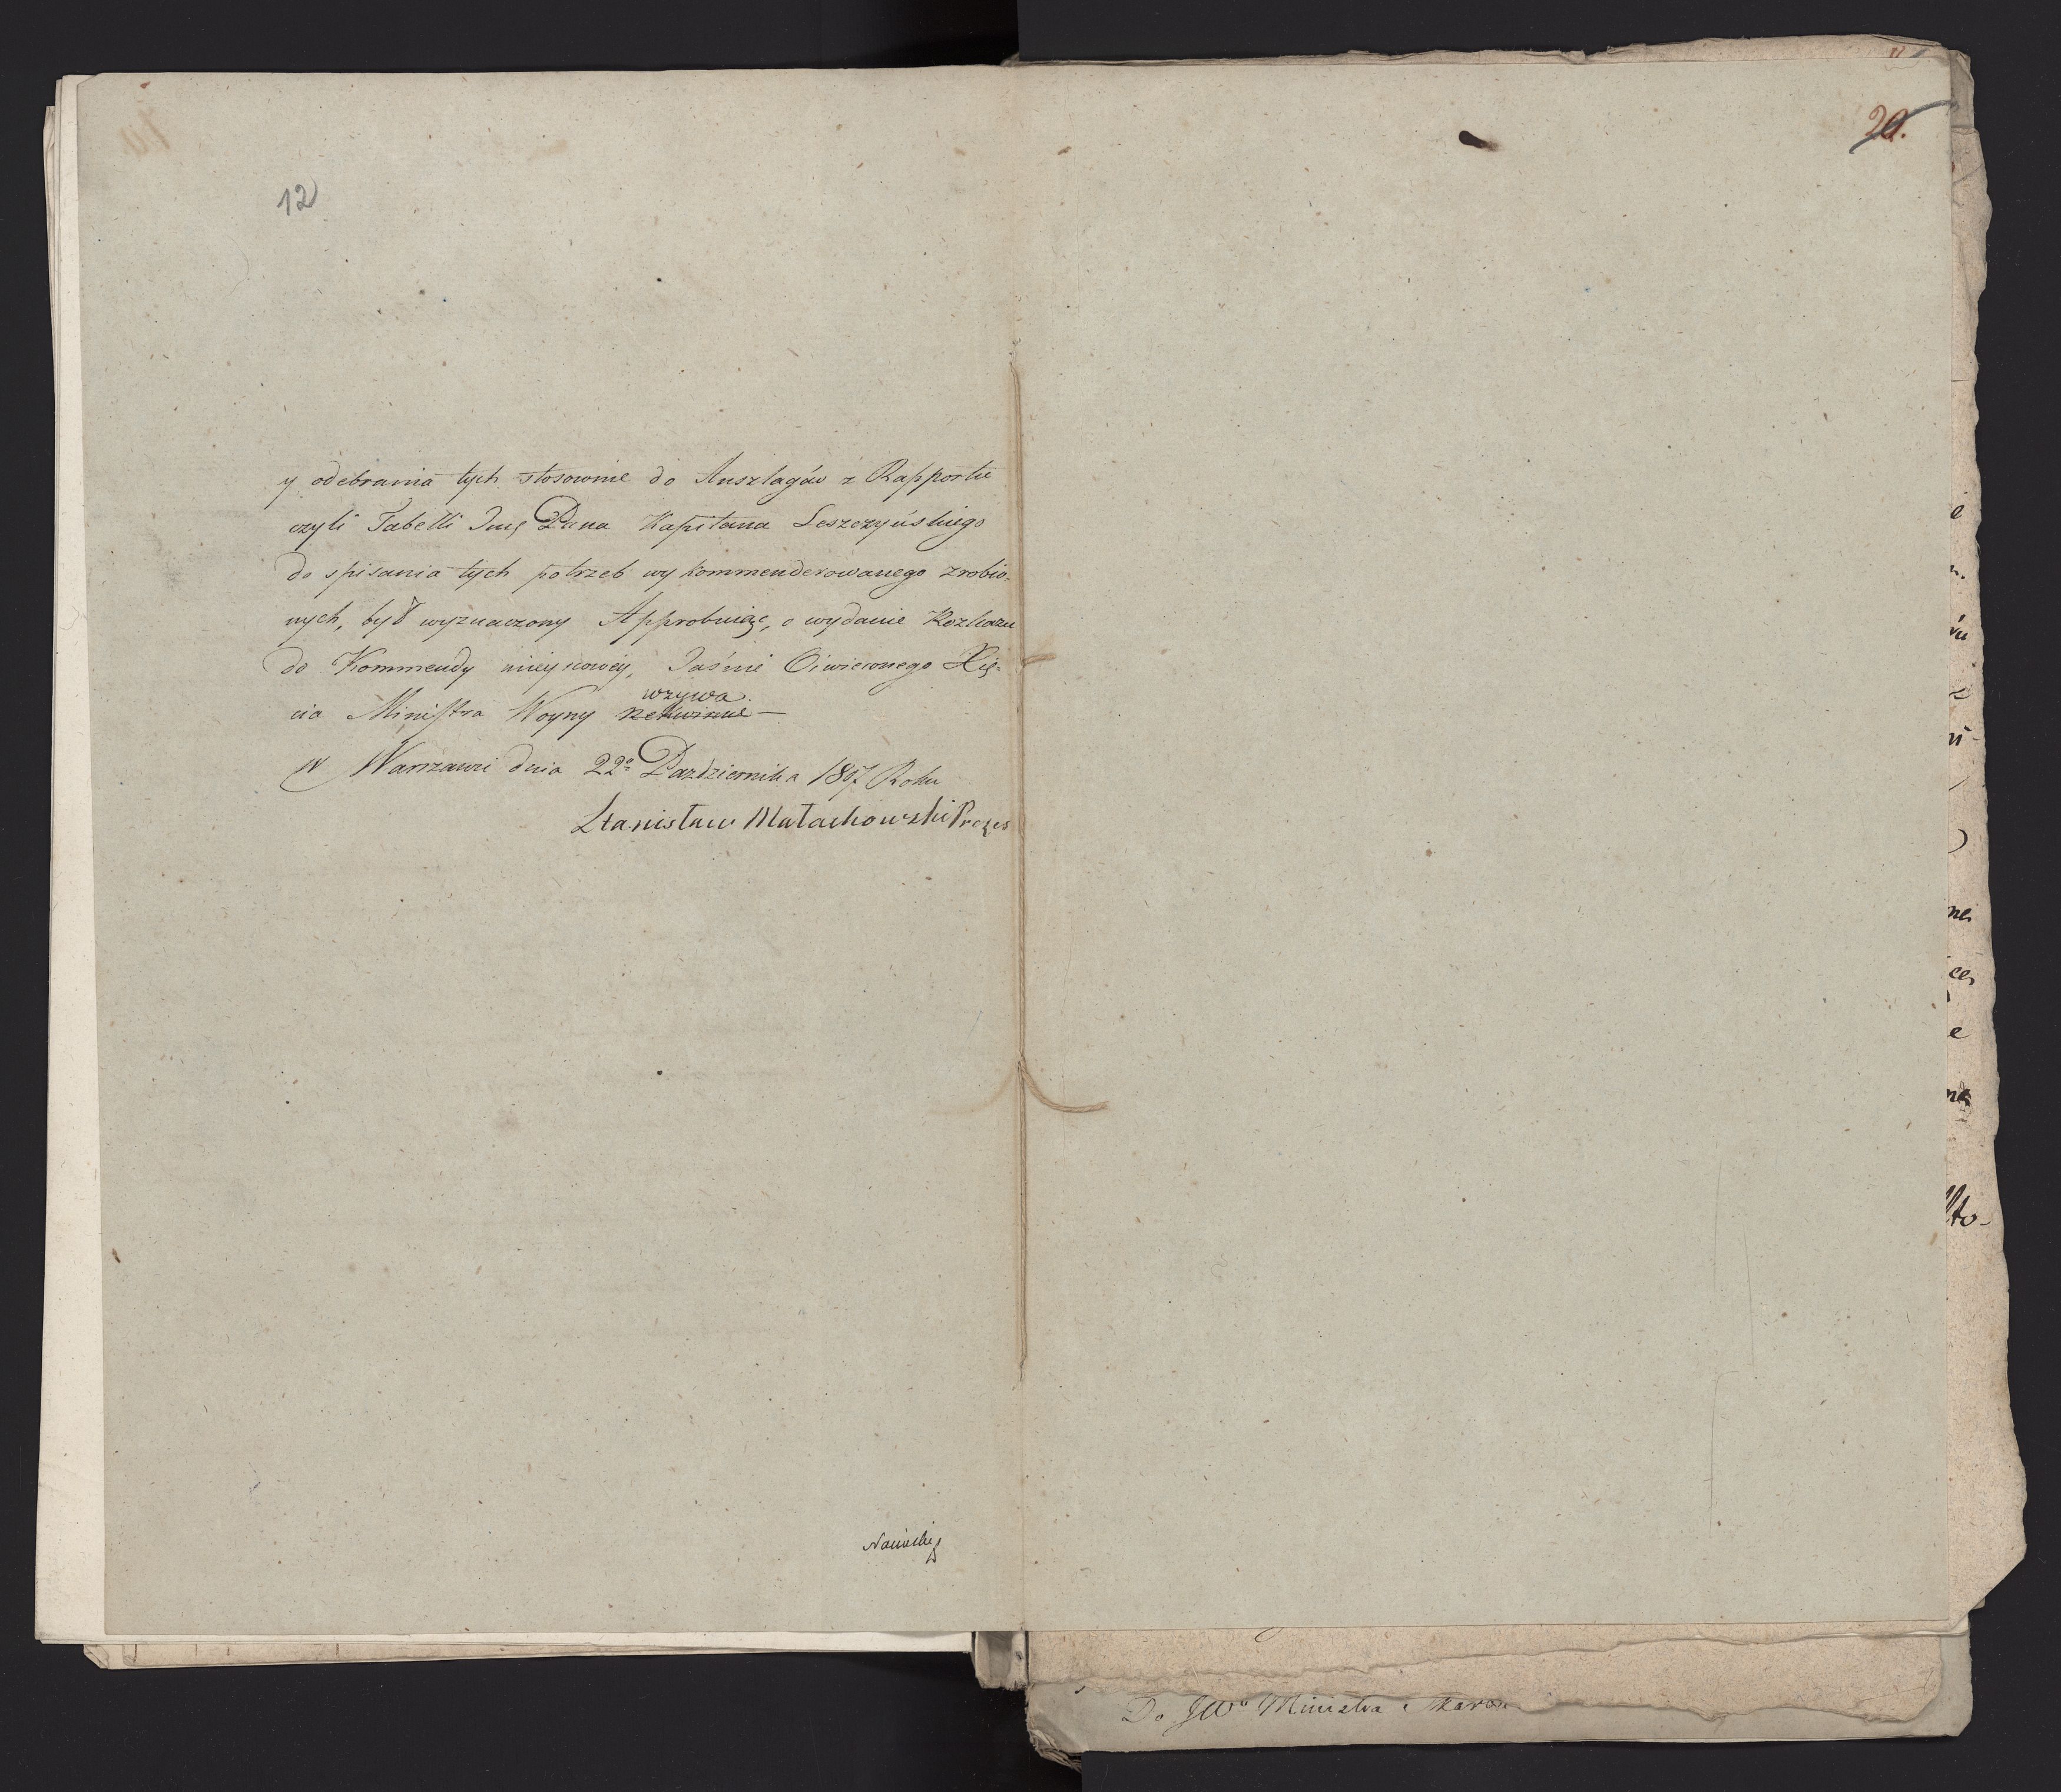 12
20.
y odebrania tych stosownie do Anszlagów z Rapportu
czyli Tabelli Jmę Pana Kapitana Leszczyńskiego
do spisania tych potrzeb wykommenderowanego zrobio-
nych, był wyznaczony Approbuiąc, o wydanie Rozkazu
do Kommendy mieyscowey, Jaśnie Oświeconego Xię-
cia Ministra Woyny wzywa
W Warszawie dnia 22º Pazdziernika 1807 Roku
Stanisław Małachowski Prezes
Do JWº Ministra Skarbu